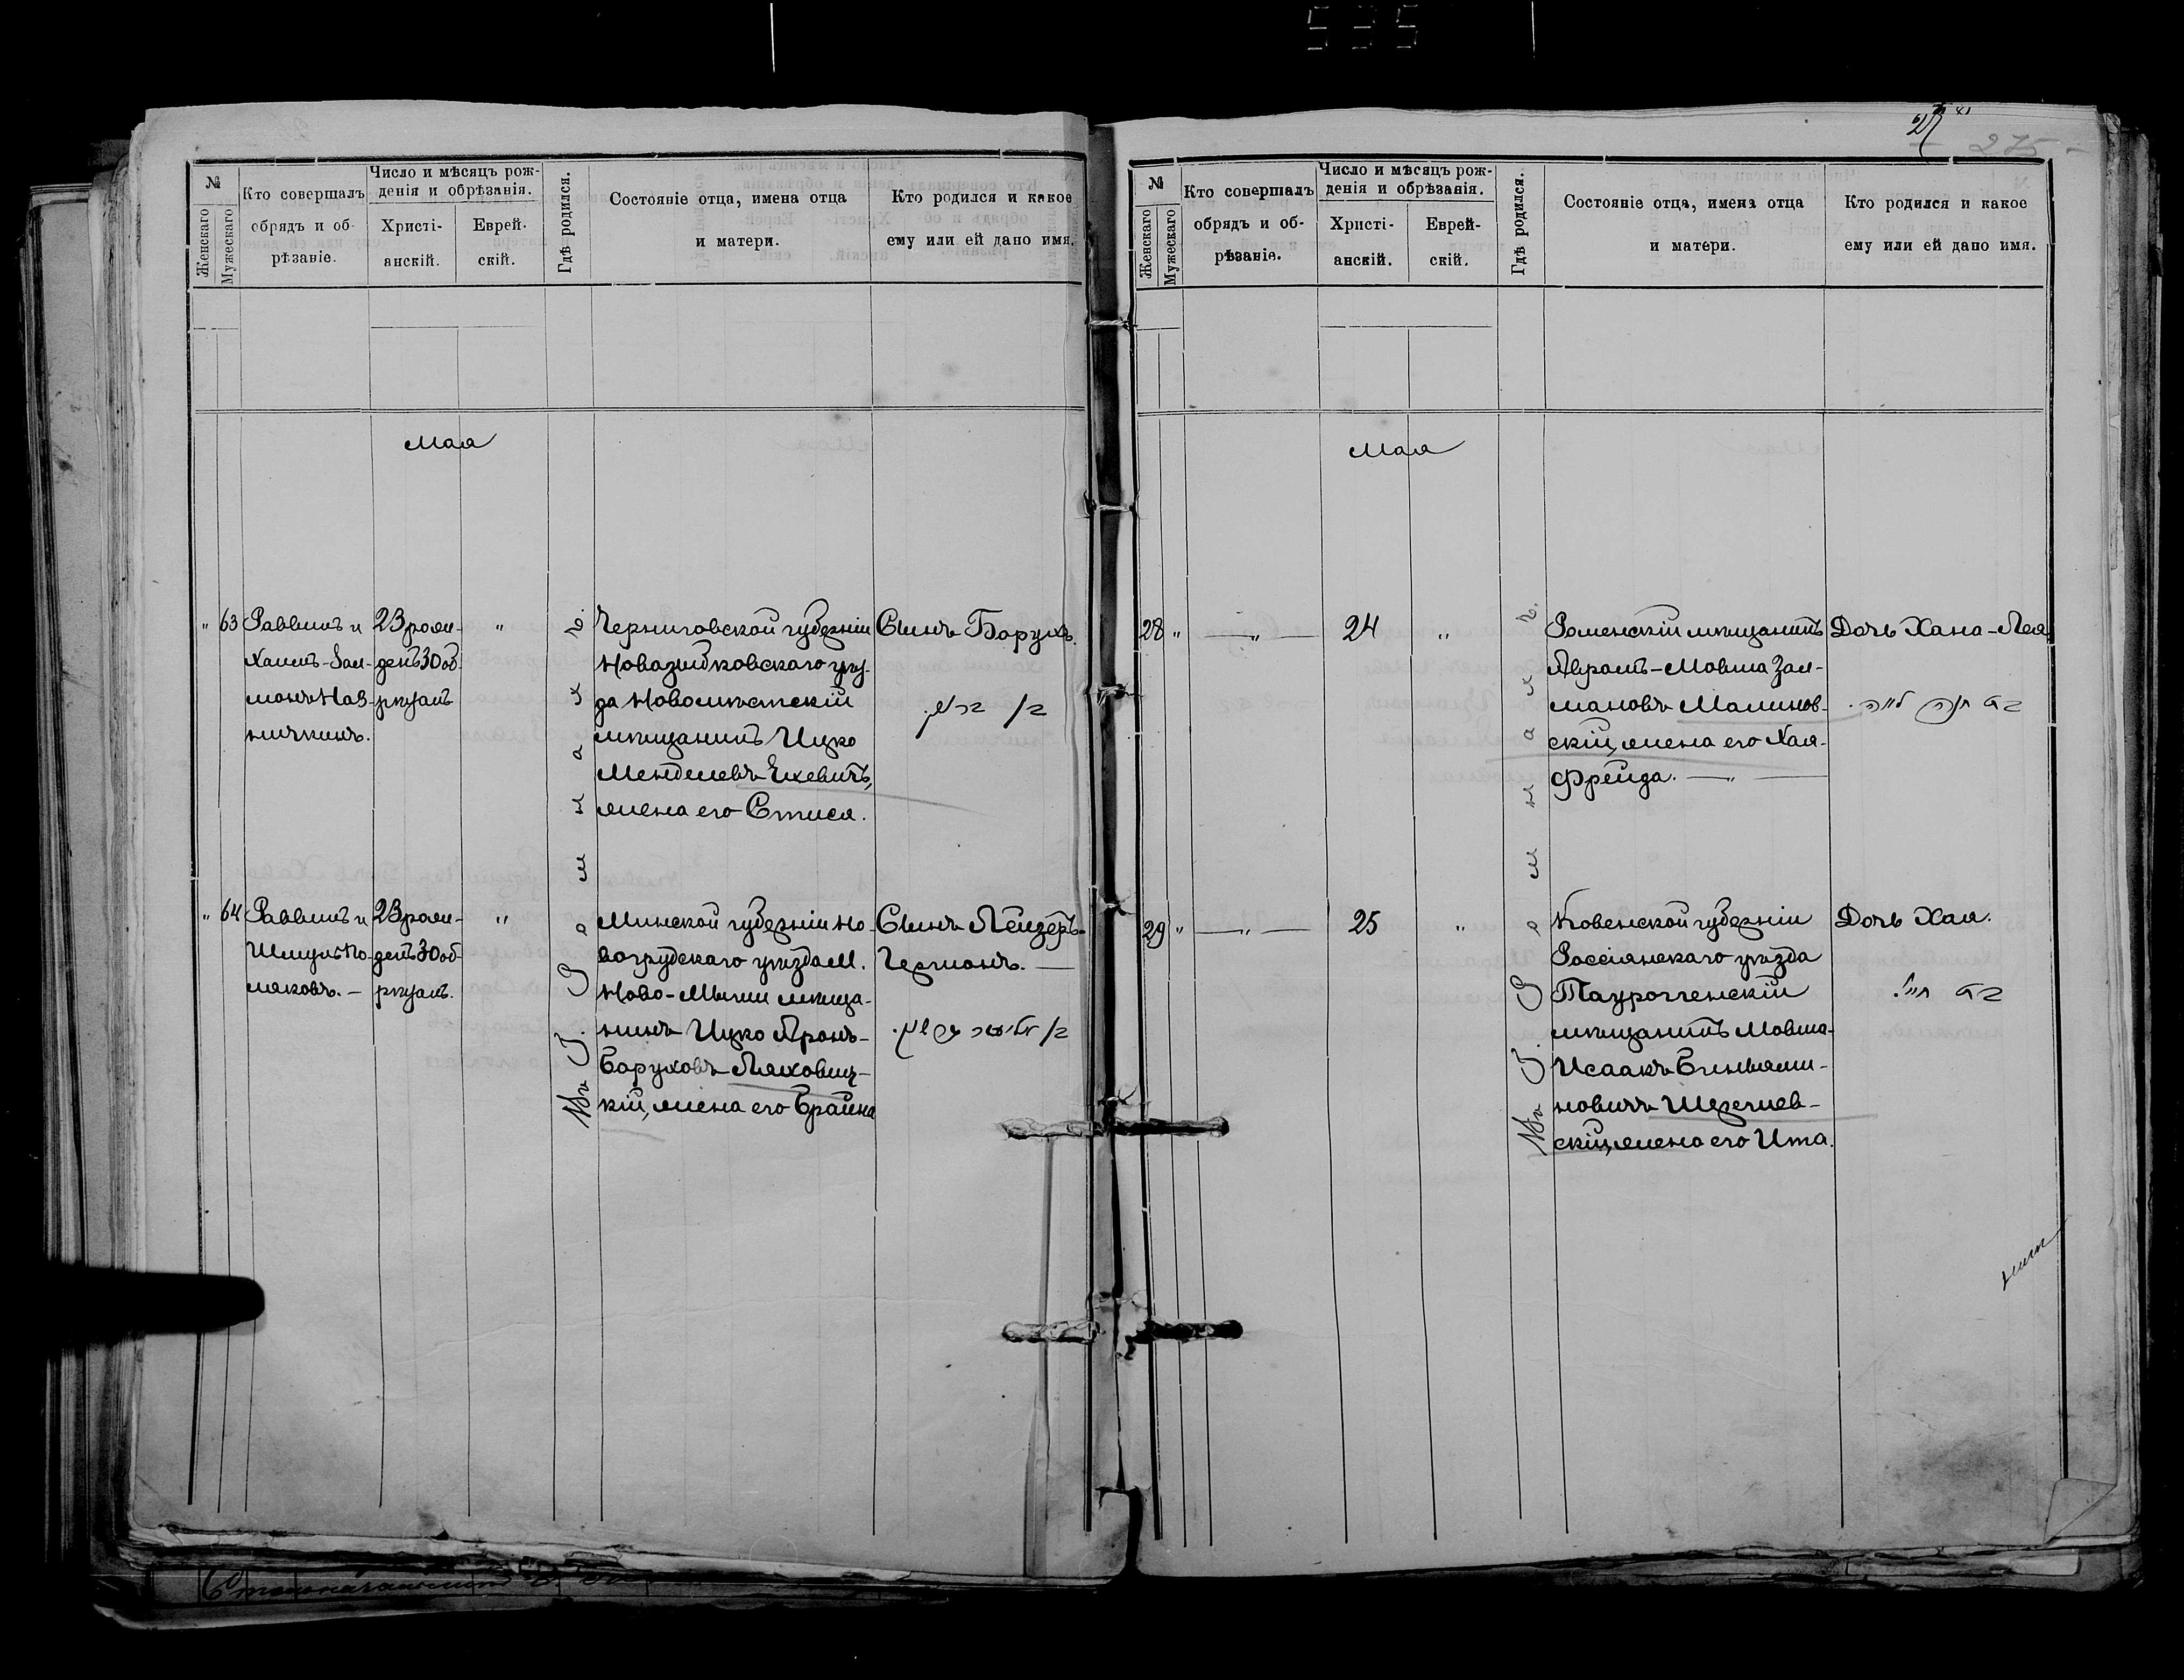 535
275
№
Женскаго
Мужескаго
Кто совершалъ
обрядъ и об-
рѣзаніе.
Число и мѣсяцъ рож-
денія и обрѣзанія.
Христі-
анскій.
Еврей-
скій.
Гдѣ родился.
Состояніе отца, имена отца
и матери.
Кто родился и какое
ему или ей дано имя.
Мая
" 63
Раввинъ и
Хаимъ-Зал-
манъ Наз-
ничкинъ.
23 рож-
денъ 30 об
рѣзанъ
"
Черниговской губерніи
Новозыбковскаго уѣз-
да Новомѣстскій
мѣщанинъ Ицко
Менделевъ Хевитъ,
жена его Стися.
Сынъ Борухъ.
" 64
Раввинъ и
Шмуль По-
ляковъ. —
23 рож-
денъ 30 об-
рѣзанъ.
"
Минской губерніи Но-
вогрудскаго уѣзда М.
Ново-Мыши мѣща-
нинъ Ицко Аронъ-
Боруховъ Ляховиц-
кій, жена его Брайна
Сынъ Лейзеръ-
Гершонъ. —
№
Женскаго
Мужескаго
Кто совершалъ
обрядъ и об-
рѣзаніе.
Число и мѣсяцъ рож-
денія и обрѣзанія.
Христі-
анскій.
Еврей-
скій.
Гдѣ родился.
Состояніе отца, имена отца
и матери.
Кто родился и какое
ему или ей дано имя.
Мая
28 "
— " —
24
"
Роменскій мѣщанинъ
Абрамъ-Мовша Зал-
мановъ Малинов-
скій, жена его Хая-
Фрейда. — " —
Дочь Хана-Лея
בת חנה לאה.
29 "
— " —
25
"
Ковенской губерніи
Россіянскаго уѣзда
Таурогенскій
мѣщанинъ Мовша-
Исаакъ Биньями-
новичъ
жена его Ита.
Дочь Хая.